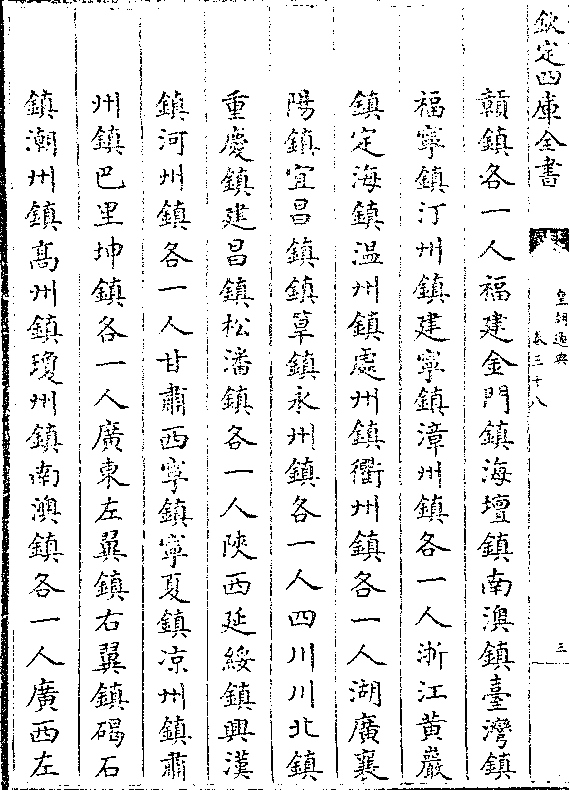 欽定四庫全書
皇朝通典
卷三十八
三
贛鎮各一人福建金門鎮海壇鎮南澳鎮臺灣鎮
福寧鎮汀州鎮建寧鎮漳州鎮各一人浙江黄巖
鎮定海鎮温州鎮處州鎮衢州鎮各一人湖廣襄
陽鎮宜昌鎮鎮草鎮永州鎮各一人四川川北鎮
重慶鎮建昌鎮松潘鎮各一人陜西延綏鎮興漢
鎮河州鎮各一人甘肅西寧鎮寧夏鎮凉州鎮肅
州鎮巴里坤鎮各一人廣東左翼鎮右翼鎮碣石
鎮潮州鎮髙州鎮瓊州鎮南澳鎮各一人廣西左